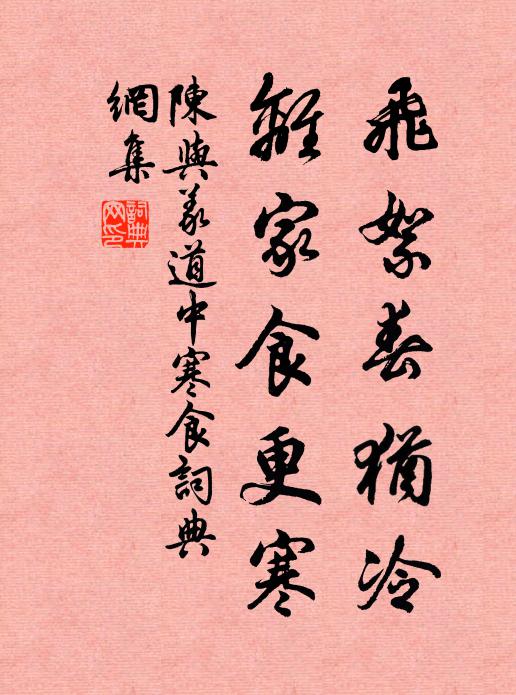 飛絮春猶冷
離家食更寒
陳與義道中寒食詞典
網集
詞典網印